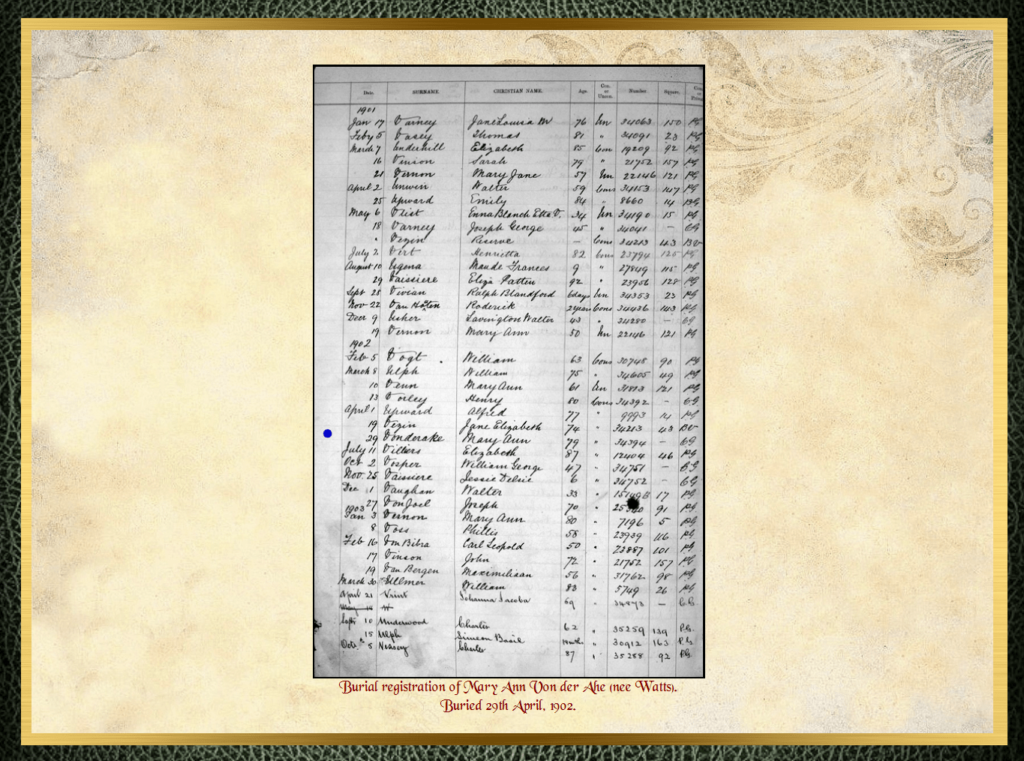 Date. SURNAME. CHRISTIAN NAME. Age. Con. or Uncon. Number Square.
1901
Jan 17 Varney Jane Louisa M 76 Un 34063 150 PG
Feby 5 Vasey Thomas 81 " 34091 23 PG
March 7 Underhill Elizabeth 85 Con 19209 92 PG
16 Vinson Sarah 79 " 21752 157 PG
21 Vernon Mary Jane 57 Un 22146 121 PG
April 2 Unwin Walter 59 Cons 34153 147 PG
25 Upward Emily 84 " 8660 14 BG
May 6 Emma Blanch Etta V. 34 Un 34190 15 PG
18 Varney Joseph George 45 " 34041 — CG
" Vezin Reserve — Cons 34213 43
July 2 Vert Henrietta 82 Cons 23794 125 PG
August 10 Ugena Maude Frances 9 " 27849 115 PG
29 Vaissiere Eliza Patten 92 " 23956 128 PG
Sept 28 Vivian Ralph Blandford 6 days Un 34353 23 PG
Nov 22 Van Hoten Roderick 2 years Cons 34436 143 PG
Decr 9 Usher Lavington Walter 43 " 34280 — CG
19 Vernon Mary Ann 50 Un 22146 121 PG
1902
Feb 5 Vogt William 63 Cons 30748 90 PG
March 8 Ulph William 75 " 34605 49 PG
10 Venn Mary Ann 61 Un 31813 121 PG
13 Henry 80 Cons 34392 — CG
April 1 Upward Alfred 77 " 9993 14 PG
19 Vezin Jane Elizabeth 74 " 34213 43
29 Vonderake Mary Ann 79 " 34394 — CG
July 11 Villiers Elizabeth 87 " 12404 46 PG
Oct 2 Vesper William George 47 " 34751 —
Nov. 25 Vaissiere Jessie 6 " 34752 — CG
Dec 1 Vaughan Walter 33 " 17 PG
27 Von Joel Joseph 70 " 91 PG
1903
Jan 3 Vernon Mary Ann 80 " 7196 5 PG
8 Voss Phillis 58 " 23939 116 PG
Feb 16 Von Bibra Carl Leopold 50 " 22887 101 PG
17 Vinson John 72 " 21752 157 PG
19 Van Bergen Maximilian 56 " 31762 98 PG
March 30 Ullmer William 83 " 5749 26 PG
April 21 Johanna Jacoba 69 " 34873 — CG
Sept 10 Underwood Charles 62 " 35259 139 P.G.
15 Ulph Simeon Basil " 30912 163 P.G.
Octr 5 87 " 35288 92 P.G.
Burial registration of Mary Ann Von der Ahe (nee Watts).
Buried 29th April, 1902.